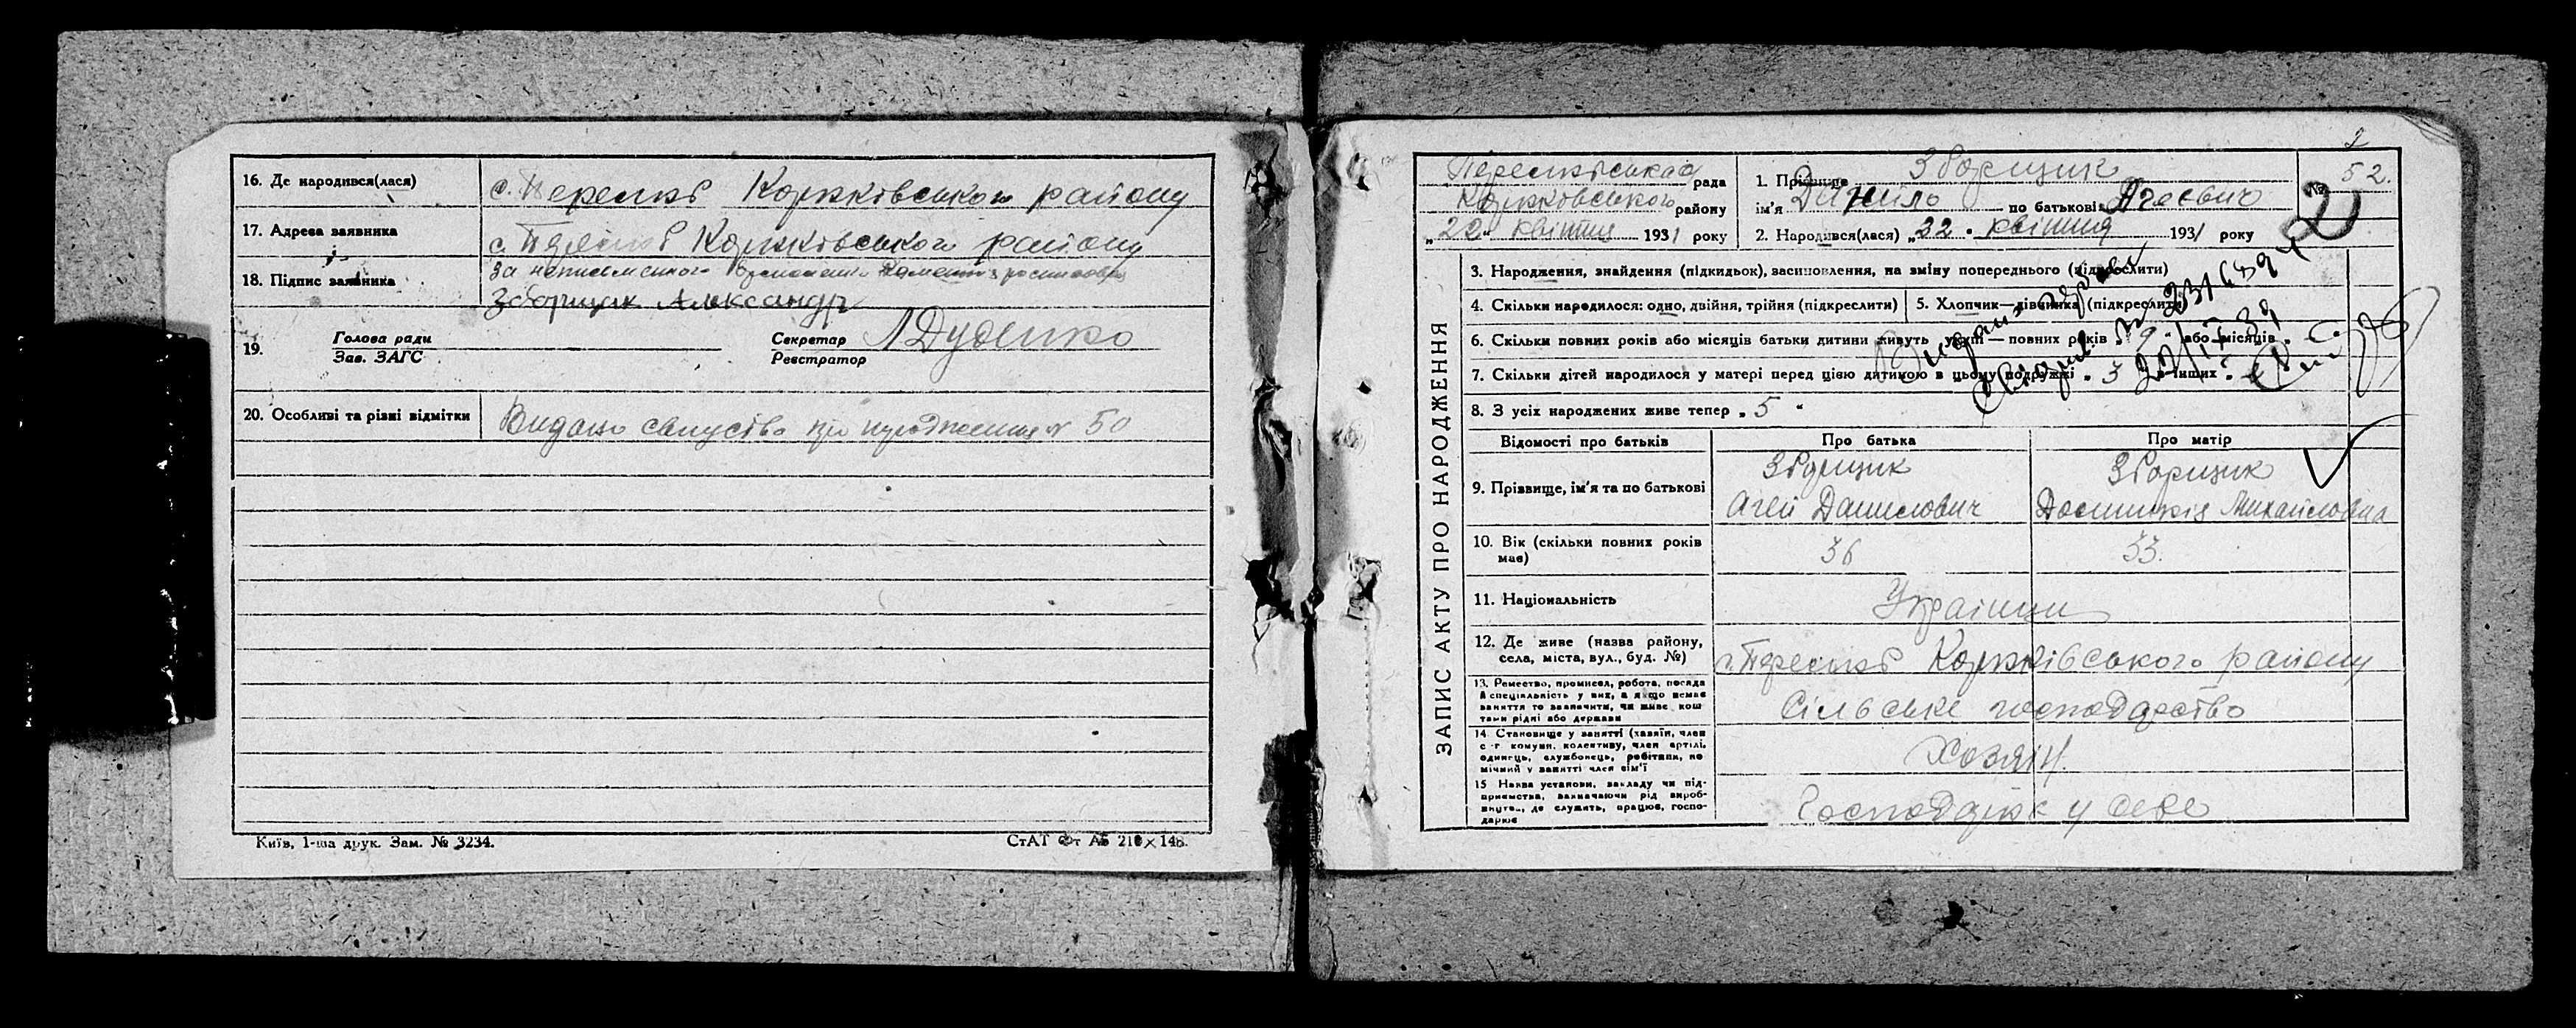 16. Де народився(лася)
с. Переляв Коржківського району
17. Адреса заявника
с. Коржківського району
18. Підпис заявника
За неписьменного
Зборщик Александр
19. Голова ради
Зав. ЗАГС
Секретар Л Дуденко
Реєстратор
20. Особливі та різні відмітки
Видано свідуство про народження № 50
Київ, 1-ша друк. Зам. № 3234.
СтАТ Фт А5 210×148.
2
рада
Коржковського району
„22" квітня 1931 року
1. Прізвище Зборщик
ім'я Данило по батькові Агеєвич
2. Народився(лася) „22" квітня 1931 року
№ 52.
2
ЗАПИС АКТУ ПРО НАРОДЖЕННЯ
3. Народження, знайдення (підкидьок), засиновлення, на зміну попереднього (підкреслити)
4. Скільки народилося: одно, двійня, трійня (підкреслити)
5. Хлопчик—дівчинка (підкреслити)
6. Скільки повних років або місяців батьки дитини живуть укупі — повних років „9" або місяців
7. Скільки дітей народилося у матері перед цією дитиною в цьому подружжі „3 в інших
8. З усіх народжених живе тепер „5"
Видан
Відомості про батьків
Про батька
Про матір
9. Прізвище, ім'я та по батькові
Зборщик
Агей Данилович
Зборщик
Михайловна
10. Вік (скільки повних років має)
36
33.
11. Національність
Українци
12. Де живе (назва району,
села, міста, вул., буд. №)
с. Коржківського району
13. Ремество, промисел, робота, посада
й спеціяльність у них, а якщо немає
заняття то зазначити, чи живе кош
тами рідні або держави
Сільське господарство
14. Становище у занятті (хазяїн, член
с.-г комуни, колективу, член артілі,
одинець, службовець, робітник, по
мічний у занятті член сім'ї
Хозяїн.
15 Назва установи, закладу чи під-
приємства, зазначаючи рід вироб-
ництв., де служить, працює, госпо-
дарює
Господарює у себе